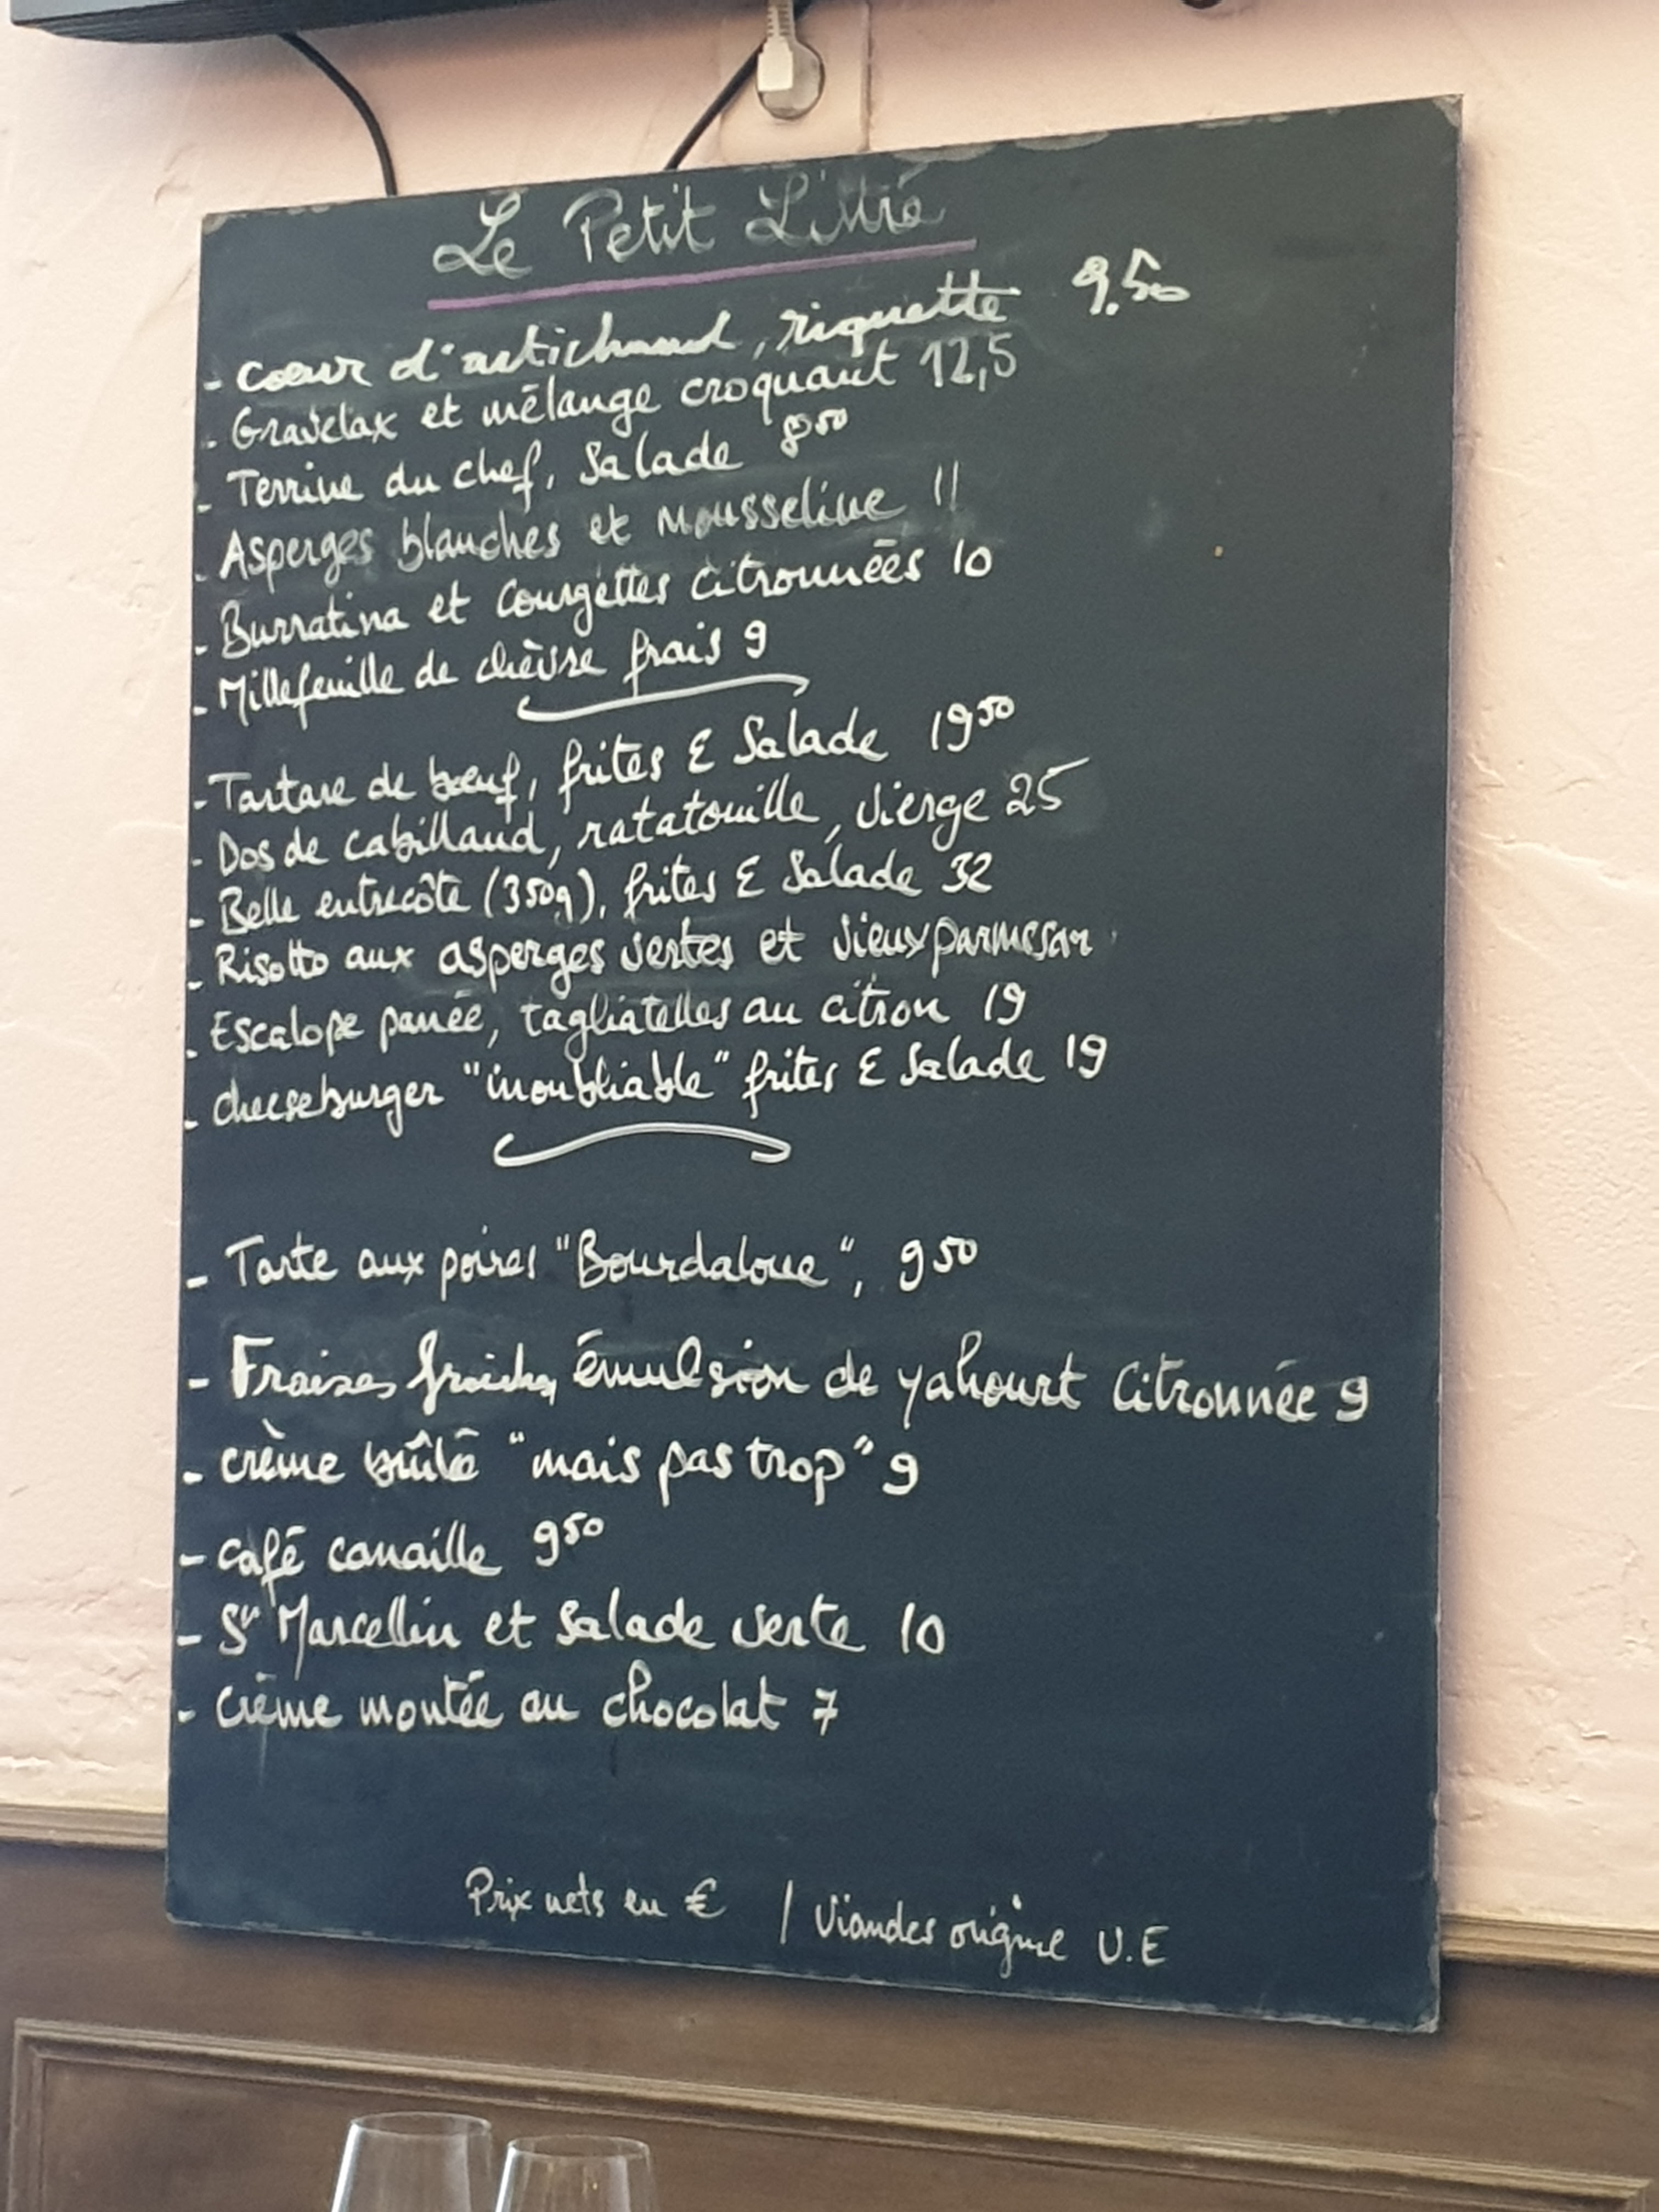 Le Petit Littré
- coeur d'artichaud, riquette 9.50
- Gravelax et mélange croquant 12,5
- Terrine du chef, Salade 8 50
- Asperges blanches et Mousseline 11
- Burratina et Courgettes citronnées 10
- Millefeuille de chèvre frais 9
- Tartare de bœuf, frites & Salade 19 50
- Dos de cabillaud, ratatouille, vierge 25
- Belle entrecôte (350g), frites & Salade 32
- Risotto aux asperges vertes et vieux parmesan
- Escalope panée, tagliatelles au citron 19
- cheeseburger "inoubliable" frites & Salade 19
- Tarte aux poires "Bourdaloue", 9 50
- Fraises fraiches, émulsion de yahourt Citronnée 9
- crème brûlé "mais pas trop" 9
- café canaille 9 50
- St Marcellin et Salade verte 10
- Crème montée au chocolat 7
Prix nets en € / Viandes origine U.E